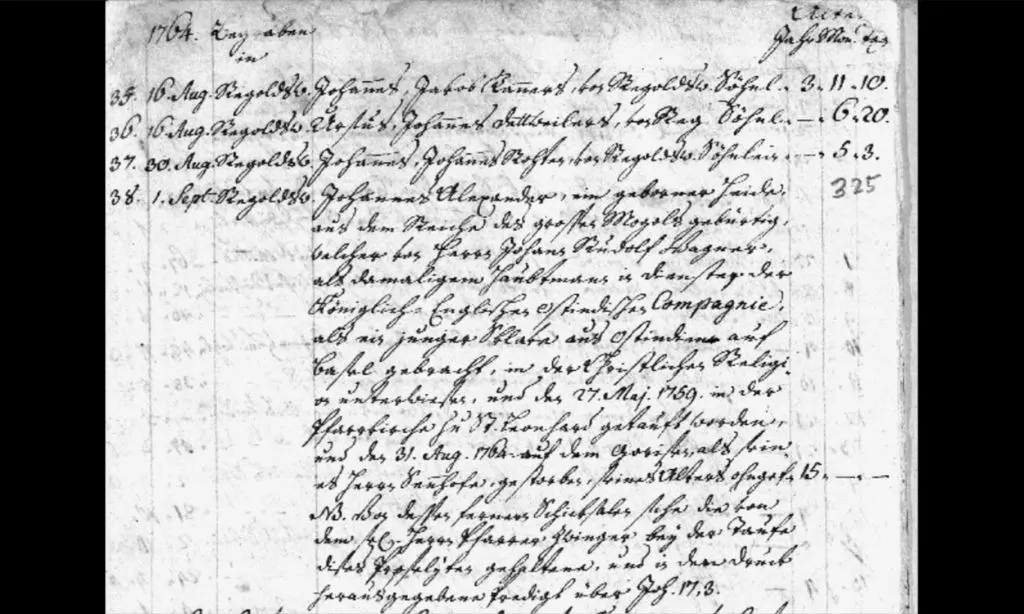 1764. Begraben Alter.
in Jahr Mon. Tag
35. 16 Aug. Regoldsw. Johannes, Jacob Tanners, von Regoldsw. Söhnl. 3. 11. 10.
36. 16 Aug. Regoldsw. Urstus, Johannes Dettweilers, von Reg. Söhnl. — 6. 20.
37. 30. Aug. Regoldsw. Johannes, Johannes Rohten, von Regoldsw. Söhnlein. — 5. 3.
38. 1. Sept. Regoldsw. Johannes Alexander, ein geborner Heide, 325
aus dem Reiche des grossen Mogols gebürtig,
welcher von Herrn Johann Rudolf Wagner,
als damaligem Haubtmann in Diensten der
Königlich-Englischen Ostindischen Compagnie,
als ein junger Sklave aus Ostindien auf
Basel gebracht, in der Christlichen Religi-
on unterwiesen, und den 27. Maj. 1759. in der
Pfarrkirche zu St. Leonhard getauft worden,
und den 31. Aug. 1764. auf dem als sein-
es Herrn Sennhofe, gestorben, seines Alters ohngef. 15. — —
NB. Von dessen fernern Schicksalen siehe die von
dem sel. Herrn Pfarrer Zwinger bey der Taufe
dieses Proselyten gehaltene, und in dem Druck
herausgegebene Predigt über Joh. 17, 3.